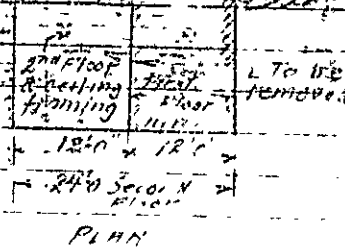 2nd Floor
& ceiling
framing
First
Floor
To be
removed
12'0" 12'0"
24'0 Second
Floor
PLAN